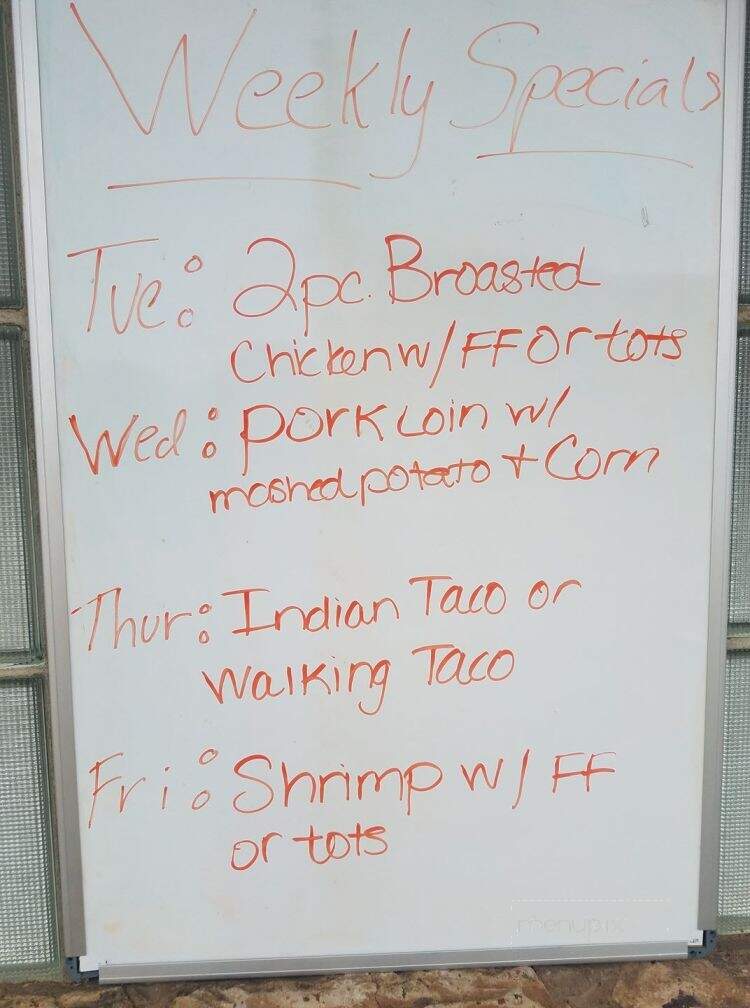 Weekly Specials
Tue: 2pc. Broasted
Chicken w/ FF or tots
Wed: pork Loin w/
mashed potato + Corn
Thur: Indian Taco or
Walking Taco
Fri: Shrimp w/ FF
or tots
menupix